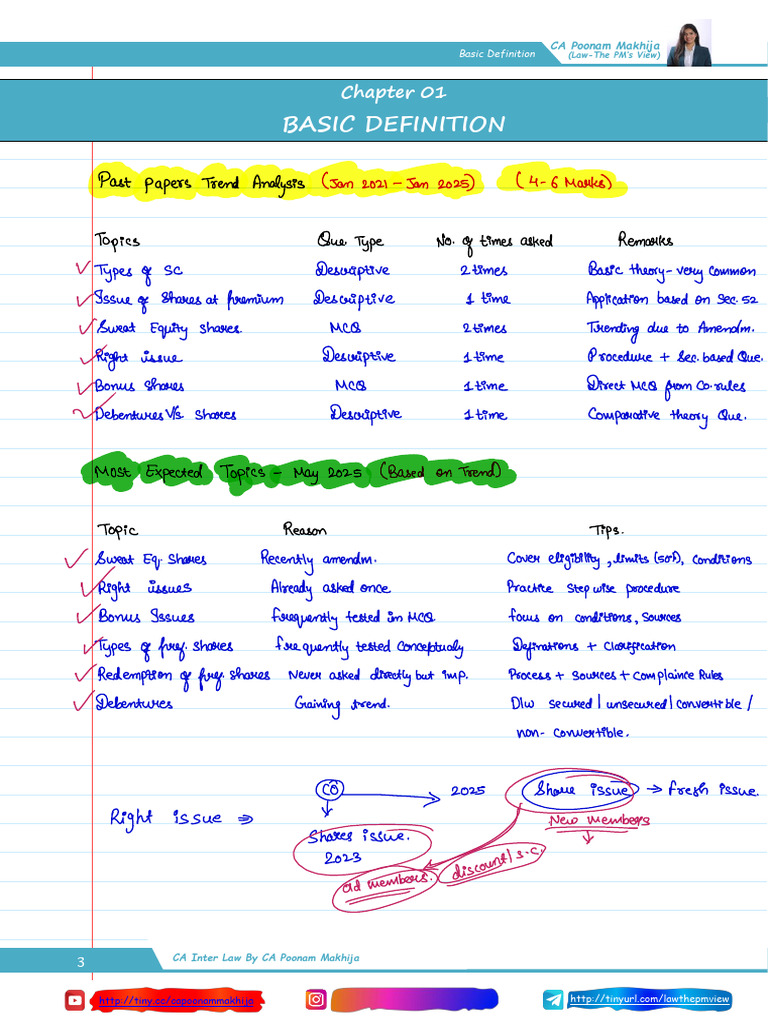 Basic Definition
CA Poonam Makhija
(Law-The PM's View)
Chapter 01
BASIC DEFINITION
Past Papers Trend Analysis (Jan 2021 - Jan 2025) (4-6 Marks)
Topics Que Type No. of times asked Remarks
Types of SC Descriptive 2 times Basic theory - very common
Issue of Shares at premium Descriptive 1 time Application based on Sec. 52
Sweat Equity shares. MCQ 2 times Trending due to Amendm.
Right issue Descriptive 1 time Procedure + Sec. based Que.
Bonus Shares MCQ 1 time Direct MCQ from Co. rules
Debentures V/s Shares Descriptive 1 time Comparative theory Que.
Most Expected Topics - May 2025 (Based on Trend)
Topic Reason Tips.
Sweat Eq. Shares Recently amendm. Cover eligibility, limits (50%), conditions
Right issues Already asked once Practice stepwise procedure
Bonus Issues frequently tested in MCQ focus on conditions, Sources
Types of pref. shares frequently tested conceptualy Definations + Clarification
Redemption of pref. shares Never asked directly but imp. Process + Sources + Complaince Rules
Debentures Gaining trend. D/w secured / unsecured / convertible /
non-convertible.
Right issue ⇒ CO → 2025 Share issue → fresh issue.
New members
Shares issue.
2023
old members. discount / s.c.
3
CA Inter Law By CA Poonam Makhija
http://tiny.cc/capoonammakhija
http://tinyurl.com/lawthepmview